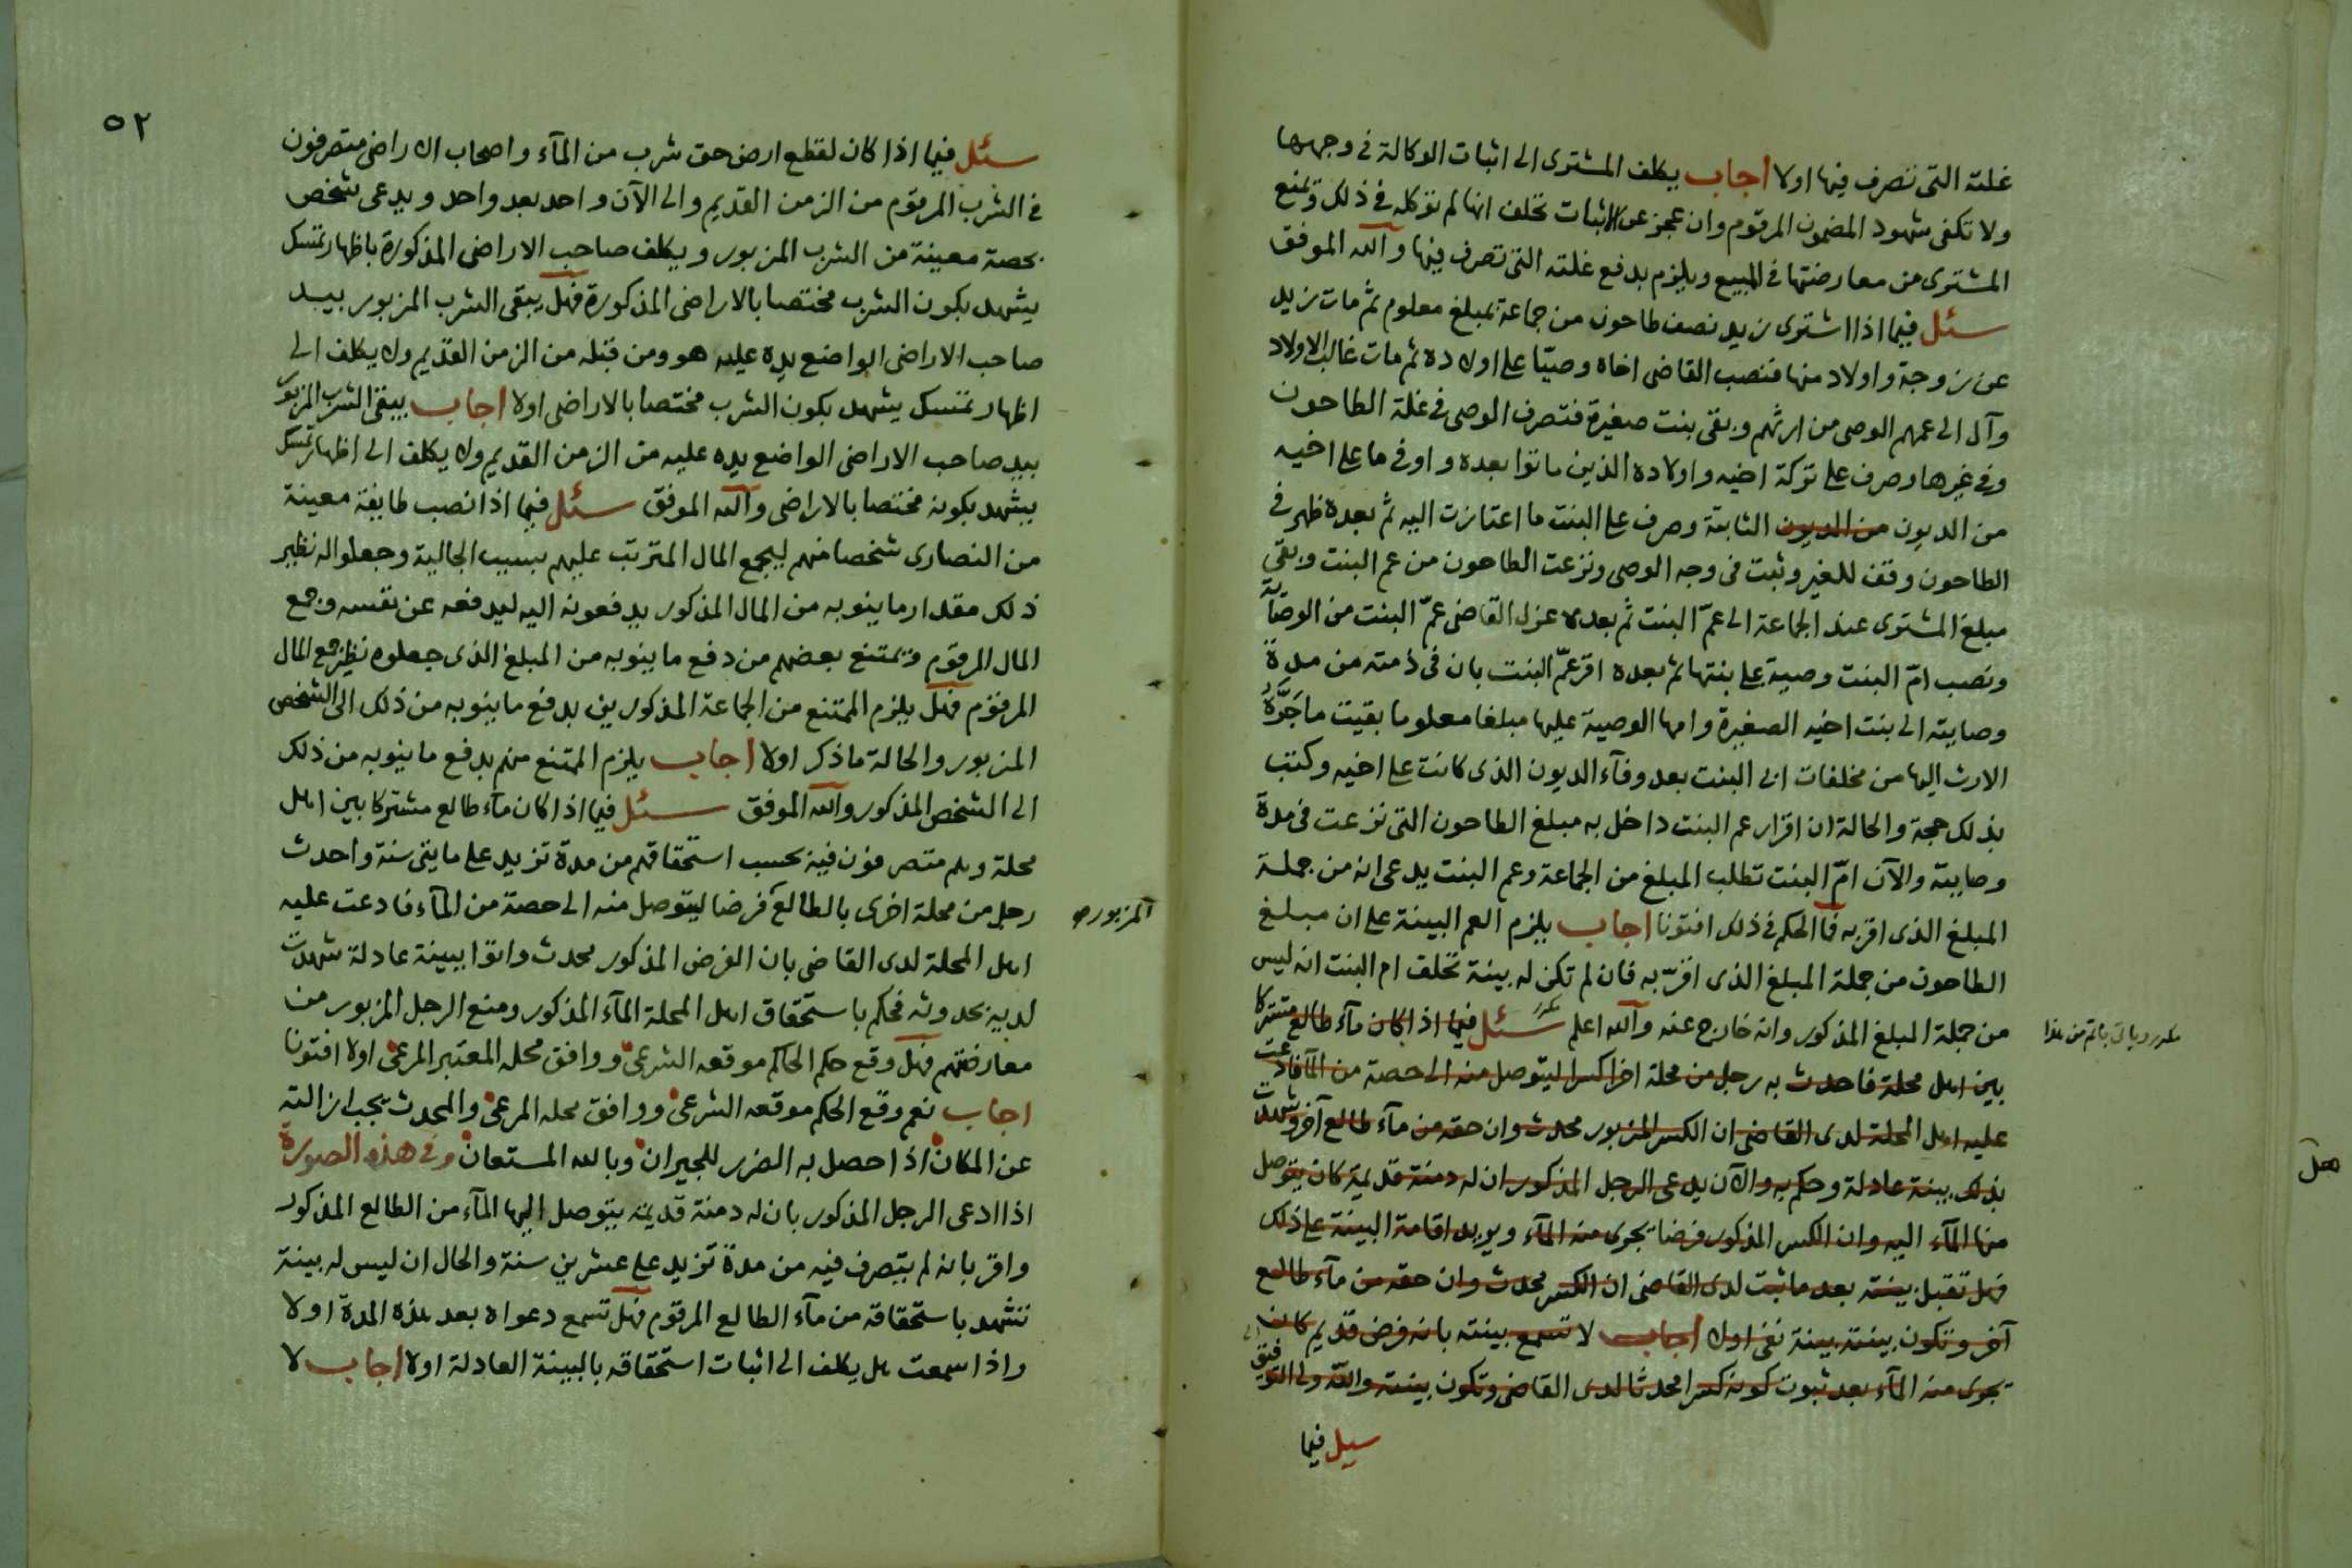 غلته التى تصرف فيها اولا اجاب يكلف المشترى الى اثبات الوكالة فى وجهها
ولا تكفى شهود المضمون المرقوم وان عجز عن الاثبات تحلف انها لم توكله فى ذلك وتمنع
المشترى من معارضتها فى المبيع ويلزم بدفع غلته التى تصرف فيها والله الموفق
سئل فيما اذا اشترى زيد نصف طاحون من جماعة بمبلغ معلوم ثم مات زيد
عن زوجة واولاد منها فنصب القاضى اخاه وصيّا على اولاده ثم مات غالب الاولاد
وآل الى عمهم الوصى من ارثهم وبقى بنت صغيرة فتصرف الوصى فى غلة الطاحون
وفى غيرها وصرف على تركة اخيه واولاده الذين ماتوا بعده واوفى ما على اخيه
من الديون من الديون الثابتة وصرف على البنت ما اعتازت اليه ثم بعده ظهر فى
الطاحون وقف للغير وثبت فى وجه الوصى ونزعت الطاحون من عم البنت وبقى
مبلغ المشترى عند الجماعة الى عمّ البنت ثم بعده عزل القاضى عمّ البنت من الوصاية
ونصب امّ البنت وصية على بنتها ثم بعده اقر عمّ البنت بان فى ذمته من مدة
وصايته الى بنت اخيه الصغيرة وامها الوصية عليها مبلغا معلوما بقيت ما جرّه
الارث اليها من مخلفات ابى البنت بعد وفآء الديون الذى كانت على اخيه وكتب
بذلك حجة والحالة ان اقرار عم البنت داخل به مبلغ الطاحون التى نزعت فى مدة
وصايته والآن امّ البنت تطلب المبلغ من الجماعة وعم البنت يدعى انه من جملة
المبلغ الذى اقر به فما الحكم فى ذلك افتونا اجاب يلزم العم البينة على ان مبلغ
الطاحون من جملة المبلغ الذى اقرّ به فان لم تكن له بينة تحلف ام البنت انه ليس
من جملة المبلغ المذكور وانه خارج عنه والله اعلم سئل فيما اذا كان مآء طالع مشتركا
مكرر
مكرر وياتى باتم من هذا
بين اهل محلة فاحدث به رجل من محلة اخرا كسرا ليتوصل منه الى حصة من المآ فادعت
عليه اهل المحلة لدى القاضى ان الكسر المزبور محدث وان حقه من مآء طالع آخر وشهدت
بذلك بينة عادلة وحكم به والآن يدعى الرجل المذكور ان له دمنة قديمة كان يتوصل
منها المآء اليه وان الكسر المذكور فرضا يجرى منه المآء ويريد اقامة البينة على ذلك
فهل تقبل بينته بعد ما ثبت لدى القاضى ان الكسر محدث وان حقه من مآء طالع
آخر وتكون بينته بينة نفى اولا اجاب لا تسمع بينته بانه فرض قديم كان
يجرى منه المآء بعد ثبوت كونه كسرا محدثا لدى القاضى وتكون بينته والله ولى التوفيق
سيل فيما
هل
٥٢
سئل فيما اذا كان لقطع ارض حق شرب من المآء واصحاب الاراضى متصرفون
فى الشرب المرقوم من الزمن القديم والى الآن واحد بعد واحد ويدعى شخص
بحصة معينة من الشرب المزبور ويكلف صاحب الاراضى المذكورة باظهار تمسك
يشهد بكون الشرب مختصا بالاراضى المذكورة فهل يبقى الشرب المزبور بيد
صاحب الاراضى الواضع يده عليه هو ومن قبله من الزمن القديم ولا يكلف الى
اظهار تمسك يشهد بكون الشرب مختصا بالاراضى اولا اجاب يبقى الشرب المزبور
بيد صاحب الاراضى الواضع يده عليه من الزمن القديم ولا يكلف الى اظهار تمسك
يشهد بكونه مختصا بالاراضى والله الموفق سئل فيما اذا نصب طايفة معينة
من النصارى شخصا منهم ليجمع المال المترتب عليهم بسبب الجالية وجعلوا له نظير
ذلك مقدار ما ينوبه من المال المذكور يدفعونه اليه ليدفعه عن نفسه وجمع
المال المرقوم ويمتنع بعضهم من دفع ما ينوبه من المبلغ الذى جعلوه نظير جمع المال
المرقوم فهل يلزم الممتنع من الجماعة المذكورين بدفع ما ينوبه من ذلك الى الشخص
المزبور والحالة ما ذكر اولا اجاب يلزم الممتنع منهم بدفع ما ينوبه من ذلك
الى الشخص المذكور والله الموفق سئل فيما اذا كان مآء طالع مشتركا بين اهل
محلة وهم متصرفون فيه بحسب استحقاقهم من مدة تزيد على مايتى سنة واحدث
رجل من محلة اخرى بالطالع فرضا ليتوصل منه الى حصة من المآء فادعت عليه
المزبور
اهل المحلة لدى القاضى بان الفرض المذكور محدث واتوا ببينة عادلة شهدت
لديه بحدوثه فحكم باستحقاق اهل المحلة المآء المذكور ومنع الرجل المزبور من
معارضتهم فهل وقع حكم الحاكم موقعه الشرعى ووافق محله المعتبر المرعى اولا افتونا
اجاب نعم وقع الحكم موقعه الشرعى ووافق محله المرعى والمحدث يجب ازالته
عن المكان اذا حصل به الضرر للجيران وبالله المستعان وفى هذه الصورة
اذا ادعى الرجل المذكور بان له دمنة قديمة يتوصل اليها المآء من الطالع المذكور
واقر بانه لم يتصرف فيه من مدة تزيد على عشرين سنة والحال ان ليس له بينة
تشهد باستحقاقه من مآء الطالع المرقوم فهل تسمع دعواه بعد هذه المدة اولا
واذا سمعت هل يكلف الى اثبات استحقاقه بالبينة العادلة اولا اجاب لا